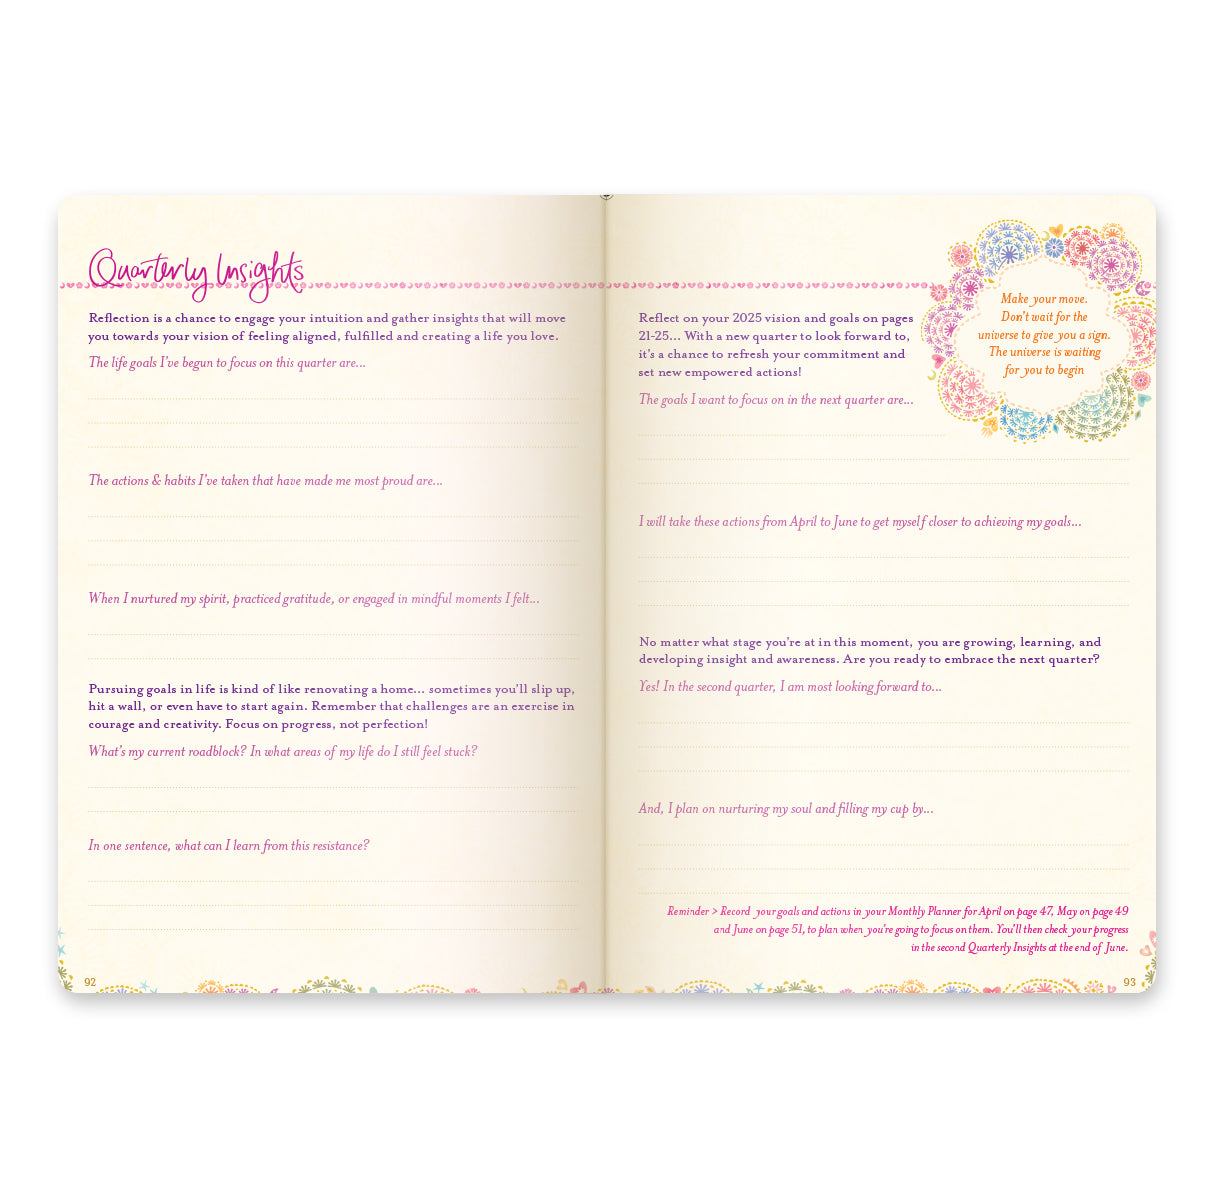 Quarterly Insights
Reflection is a chance to engage your intuition and gather insights that will move
you towards your vision of feeling aligned, fulfilled and creating a life you love.
The life goals I've begun to focus on this quarter are...
The actions & habits I've taken that have made me most proud are...
When I nurtured my spirit, practiced gratitude, or engaged in mindful moments I felt...
Pursuing goals in life is kind of like renovating a home... sometimes you'll slip up,
hit a wall, or even have to start again. Remember that challenges are an exercise in
courage and creativity. Focus on progress, not perfection!
What's my current roadblock? In what areas of my life do I still feel stuck?
In one sentence, what can I learn from this resistance?
92
Reflect on your 2025 vision and goals on pages
21-25... With a new quarter to look forward to,
it's a chance to refresh your commitment and
set new empowered actions!
Make your move.
Don't wait for the
universe to give you a sign.
The universe is waiting
for you to begin
The goals I want to focus on in the next quarter are...
I will take these actions from April to June to get myself closer to achieving my goals...
No matter what stage you're at in this moment, you are growing, learning, and
developing insight and awareness. Are you ready to embrace the next quarter?
Yes! In the second quarter, I am most looking forward to...
And, I plan on nurturing my soul and filling my cup by...
Reminder > Record your goals and actions in your Monthly Planner for April on page 47, May on page 49
and June on page 51, to plan when you're going to focus on them. You'll then check your progress
in the second Quarterly Insights at the end of June.
93